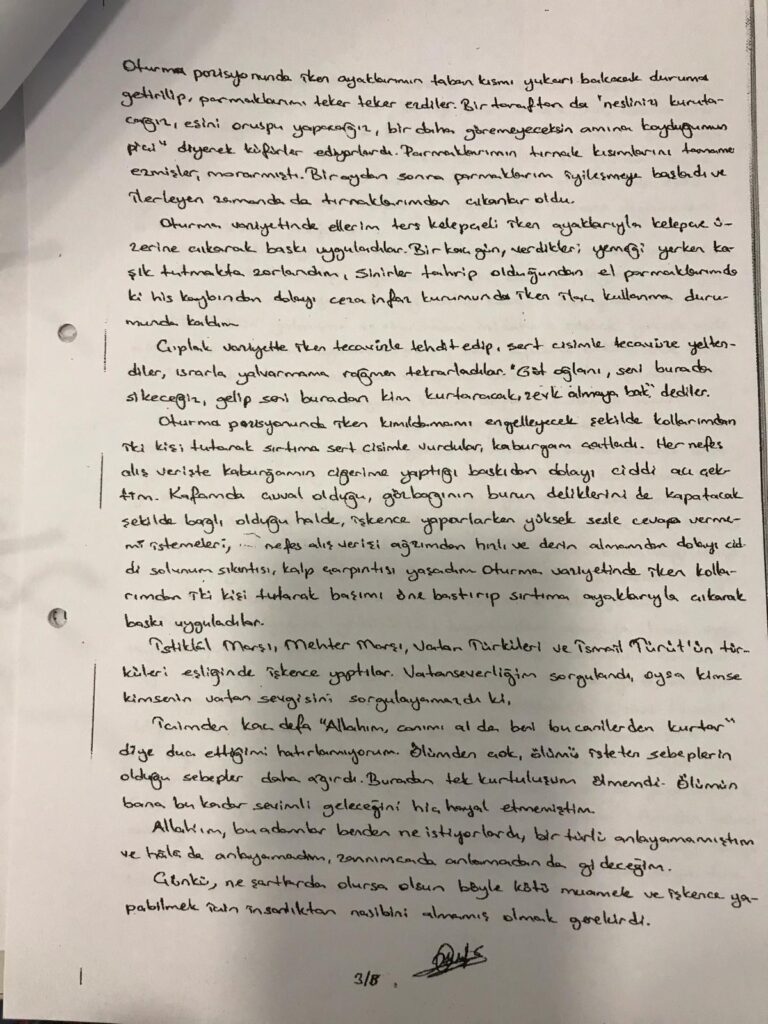 Oturma pozisyonunda iken ayaklarımın taban kısmı yukarı bakacak duruma
getirilip, parmaklarımı teker teker ezdiler. Bir taraftan da "neslinizi kuruta-
cağız, eşini oruspu yapacağız, bir daha göremeyeceksin amına koyduğumun
pici" diyerek küfürler ediyorlardı. Parmaklarımın tırnak kısımlarını tamame
ezmişler, morarmıştı. Bir aydan sonra parmaklarım iyileşmeye başladı ve
ilerleyen zamanda da tırnaklarımdan çıkanlar oldu.
Oturma vaziyetinde ellerim ters kelepçeli iken ayaklarıyla kelepçe ü-
zerine çıkarak baskı uyguladılar. Bir kaç gün, verdikleri yemeği yerken ka-
şık tutmakta zorlandım, sinirler tahrip olduğundan el parmaklarımda
ki his kaybından dolayı ceza infaz kurumunda iken ilaç kullanma duru-
munda kaldım
Çıplak vaziyette iken tecavüzle tehdit edip, sert cisimle tecavüze yelten-
diler, ısrarla yalvarmama rağmen tekrarladılar. "Göt oğlanı, seni burada
sikeceğiz, gelip seni buradan kim kurtaracak, zevk almaya bak" dediler.
Oturma pozisyonunda iken kımıldamamı engelleyecek şekilde kollarımdan
iki kişi tutarak sırtıma sert cisimle vurdular, kaburgam çatladı. Her nefes
alış verişte kaburgamın ciğerime yaptığı baskıdan dolayı ciddi acı çek-
tim. Kafamda çuval olduğu, gözbağının burun deliklerini de kapatacak
şekilde bağlı olduğu halde, işkence yaparlarken yüksek sesle cevap verme-
mi istemeleri, nefes alış verişi ağzımdan hızlı ve derin almamdan dolayı cid-
di solunum sıkıntısı, kalp çarpıntısı yaşadım. Oturma vaziyetinde iken kolla-
rımdan iki kişi tutarak başımı öne bastırıp sırtıma ayaklarıyla çıkarak
baskı uyguladılar.
İstiklâl Marşı, Mehter Marşı, Vatan Türküleri ve İsmail Türüt'ün tür-
küleri eşliğinde işkence yaptılar. Vatanseverliğim sorgulandı, oysa kimse
kimsenin vatan sevgisini sorgulayamazdı ki,
İçimden kaç defa "Allahım, canımı al da beni bu canilerden kurtar"
diye dua ettiğimi hatırlamıyorum. Ölümden çok, ölümü isteten sebeplerin
olduğu sebepler daha ağırdı. Buradan tek kurtuluşum ölmemdi. Ölümün
bana bu kadar sevimli geleceğini hiç hayal etmemiştim.
Allahım, bu adamlar benden ne istiyorlardı, bir türlü anlayamamıştım
ve hâlâ da anlayamadım, zannımca da anlamadan da gideceğim.
Çünkü, ne şartlarda olursa olsun böyle kötü muamele ve işkence ya-
pabilmek için insanlıktan nasibini almamış olmak gerekirdi.
3/8